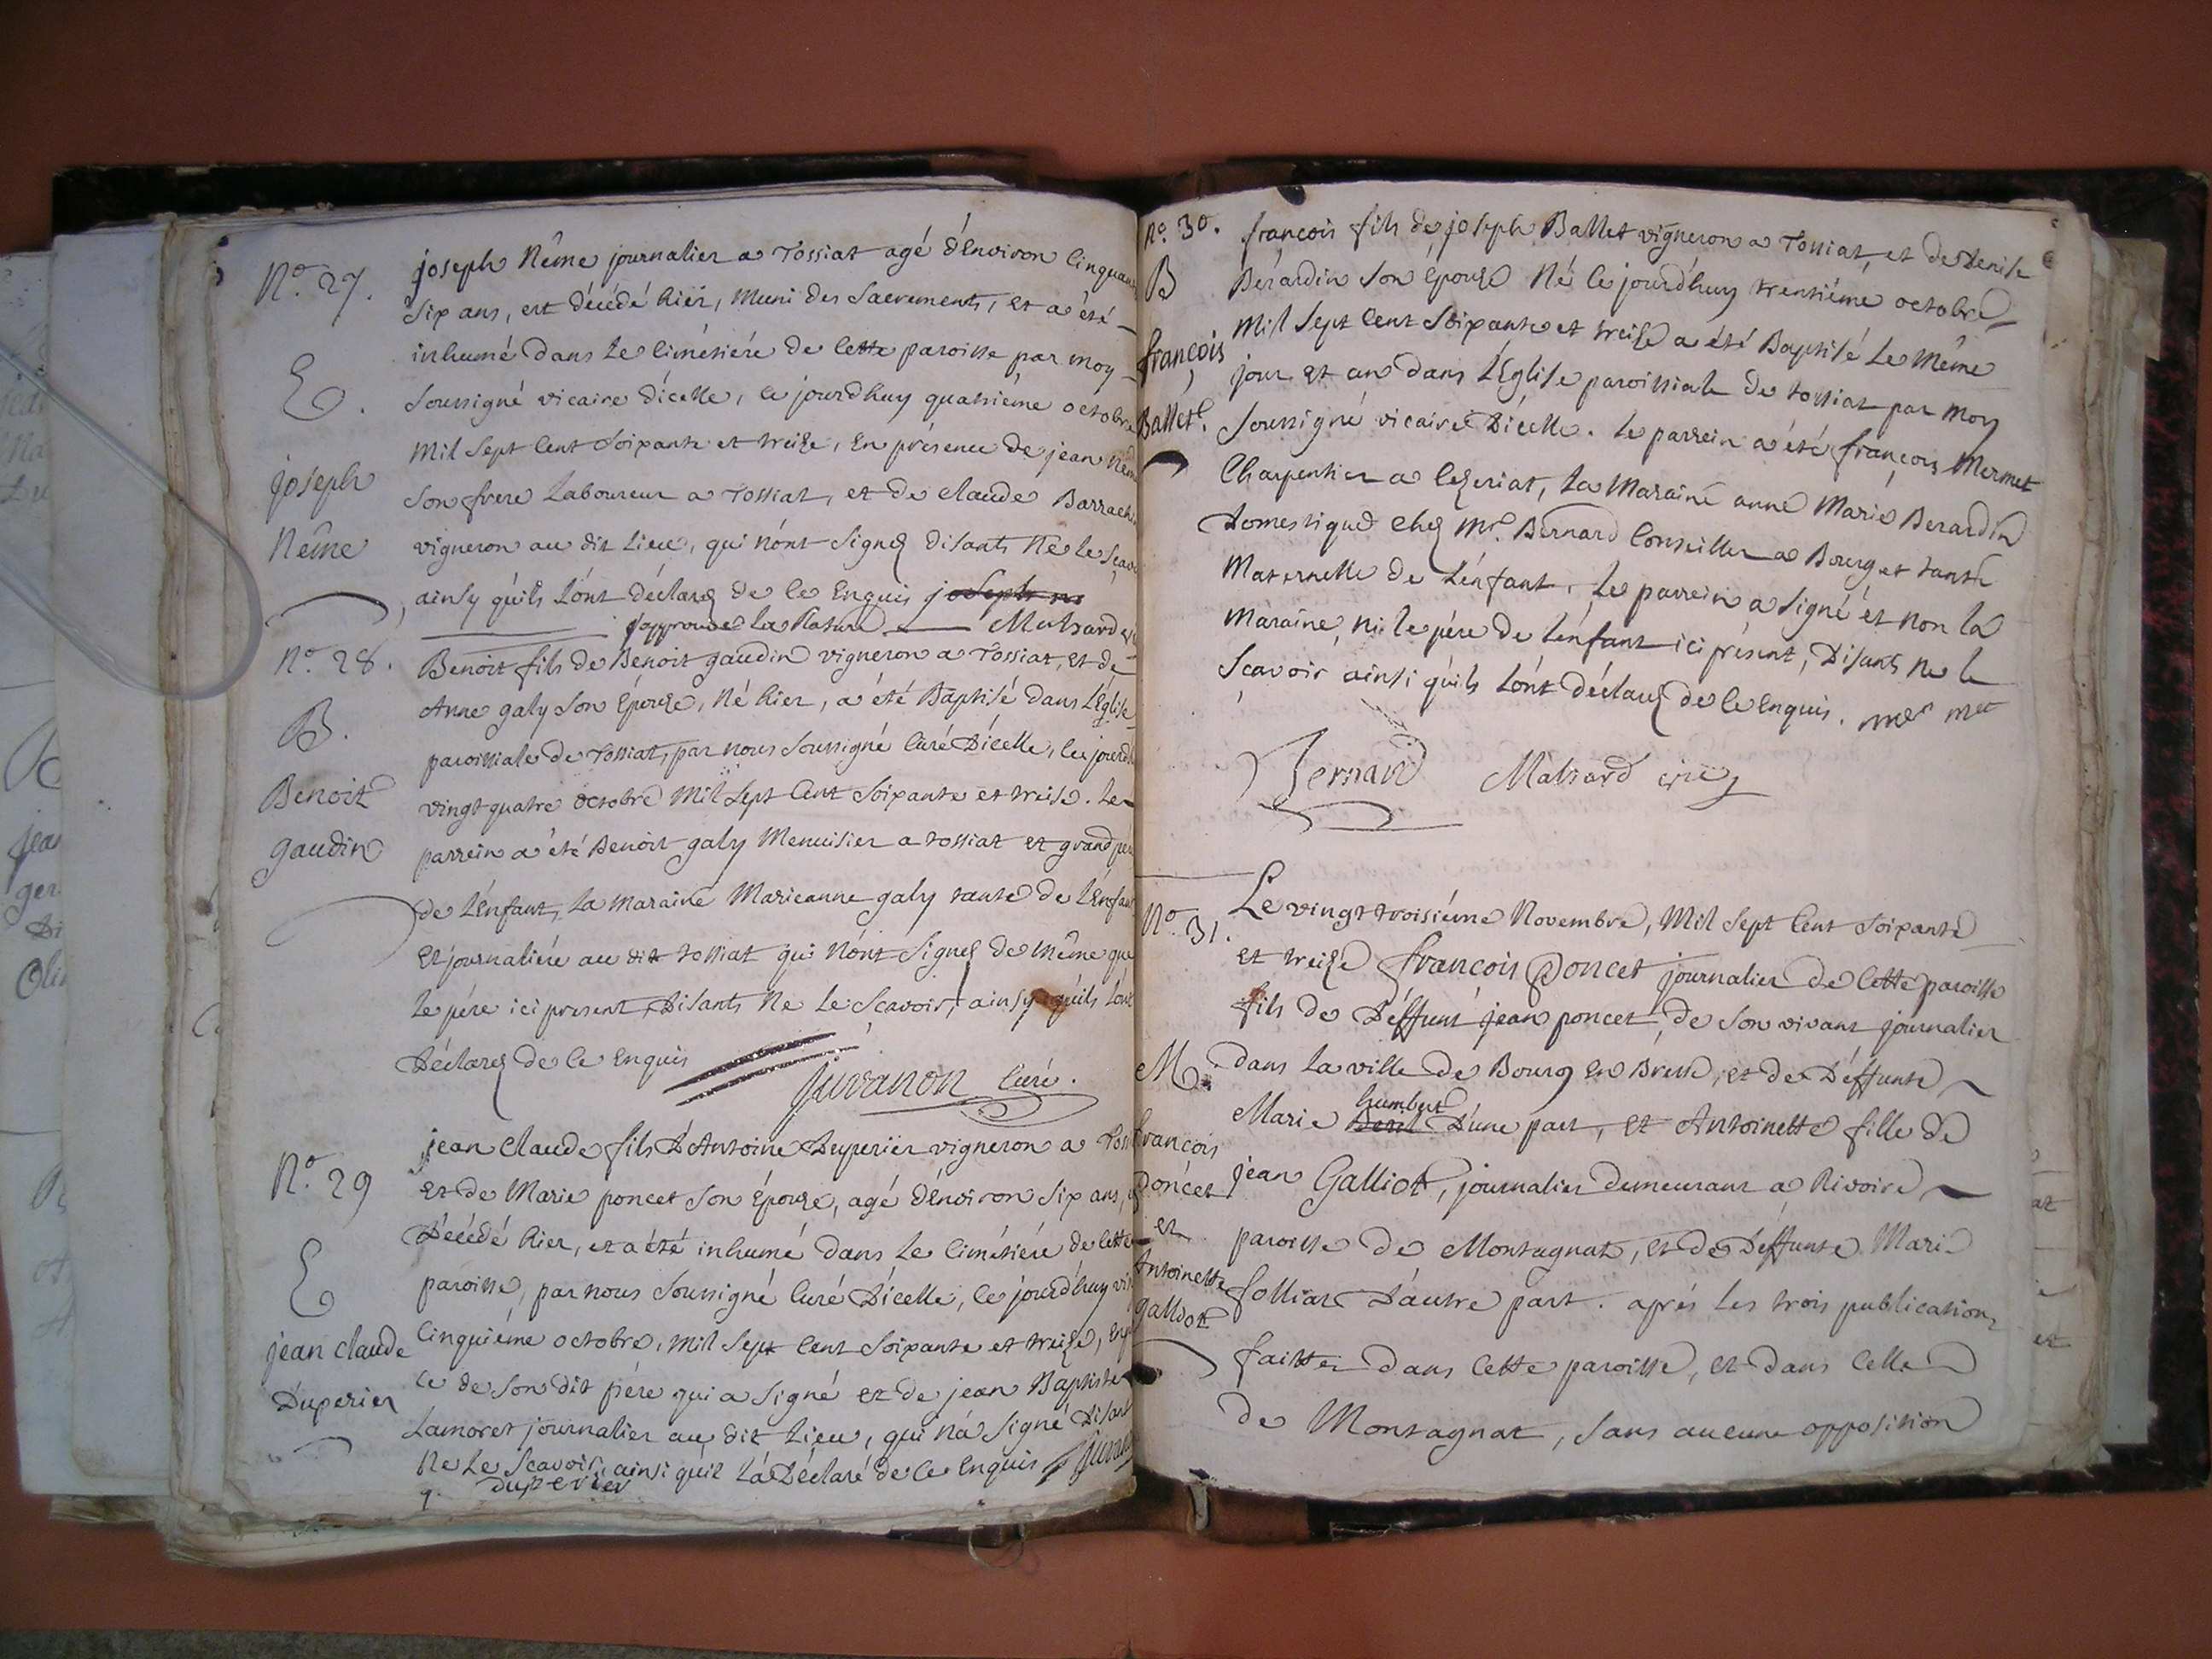 N.o 27.
E.
joseph
Nême
joseph Nême journalier a Tossiat agé d'Environ Cinquan
Six ans, est décédé hier, Muni des Sacrements, et a été
inhumé dans Le Cimétiére de Cette paroisse par moy
Soussigné vicaire d'icelle, ce jourdhuy quatriéme octobre
Mil Sept Cent Soixante et treize, En présence de jean Nem
Son frere Laboureur a Tossiat, et de claude Barrach
vigneron au dit Lieu, qui n'ont Signez disants Ne le Scav
ainsy qu'ils L'ont déclarez de Ce Enquis joseph ne
j'approuve La Rature Matrard
N.o 28.
B.
Benoit
gaudin
Benoit fils de Benoit gaudin vigneron a Tossiat, et de
Anne galy Son Epouze, Né hier, a été Baptisé dans L'Eglise
paroissiale de Tossiat, par nous Soussigné Curé D'icelle, ce jourd
vingt quatre octobre Mil Sept Cent Soixante et treise. Le
parrein a été Benoit galy Menuisier a tossiat et grand pér
de L'Enfant, La Maraine Marieanne galy tante de L'Enfan
Et journaliére au dit tossiat qui n'ont Signez de Même que
Le pére ici present, Disants Ne Le Scavoir, ainsy qu'ils L'ont
Déclarez de Ce Enquis
juvanon Curé.
N.o 29
E
jean claude
Duperier
jean claude fils D'Antoine Duperier vigneron a Toss
et de Marie poncet Son Epouze, agé d'Environ Six ans,
Décédé hier, et a été inhumé dans Le Cimétiére de Cette
paroisse, par nous Soussigné Curé D'icelle, ce jourd'huy vin
Cinquiéme octobre, Mil Sept Cent Soixante et treize, En p
ce de Son dit pére qui a Signé et de jean Baptiste
Lamoret journalier au dit Lieu, qui n'a Signé Disant
Ne Le Scavoir, ainsi quil L'a Déclaré de Ce Enquis juvan
duperier
N.o 30.
B
françois
Ballet.
françois fils de joseph Ballet vigneron a Tossiat, et de Denise
Bérardin Son Epouze Né le jourd'huy trentiéme octobre
Mil Sept Cent Soixante et treize a été Baptisé Le Même
jour et an dans L'Eglise paroissiale de tossiat par Moy
Soussigné vicaire D'icelle. Le parrein a été françois Mermet
Charpentier a Cezeriat, La Maraine anne Marie Berardin
Domestique chez Mr. Bernard Conseiller a Bourg et tante
Maternelle de L'énfant, Le parrein a Signé et Non la
Maraine, Ni le pére de L'énfant ici présent, Disants Ne le
Scavoir ainsi qu'ils L'ont déclarez de Ce Enquis. mer met
Bernard Matrard vic
N.o 31.
M.
françois
Poncet
et
Antoinette
Galliot
Le vingt troisiéme Novembre, Mil Sept Cent Soixante
et treize françois Poncet journalier de Cette paroisse
fils de Déffunt jean poncet, de Son vivant journalier
dans La ville de Bourg En Bresse, et de Déffunte
humbert
Marie D'une part, Et Antoinette fille de
jean Galliot, journalier demeurant a Rivoire
paroisse de Montagnat, et de Déffunte Marie
folliat D'autre part. aprés Les trois publications
faittes dans Cette paroisse, et dans Celle
de Montagnat, Sans aucune opposition